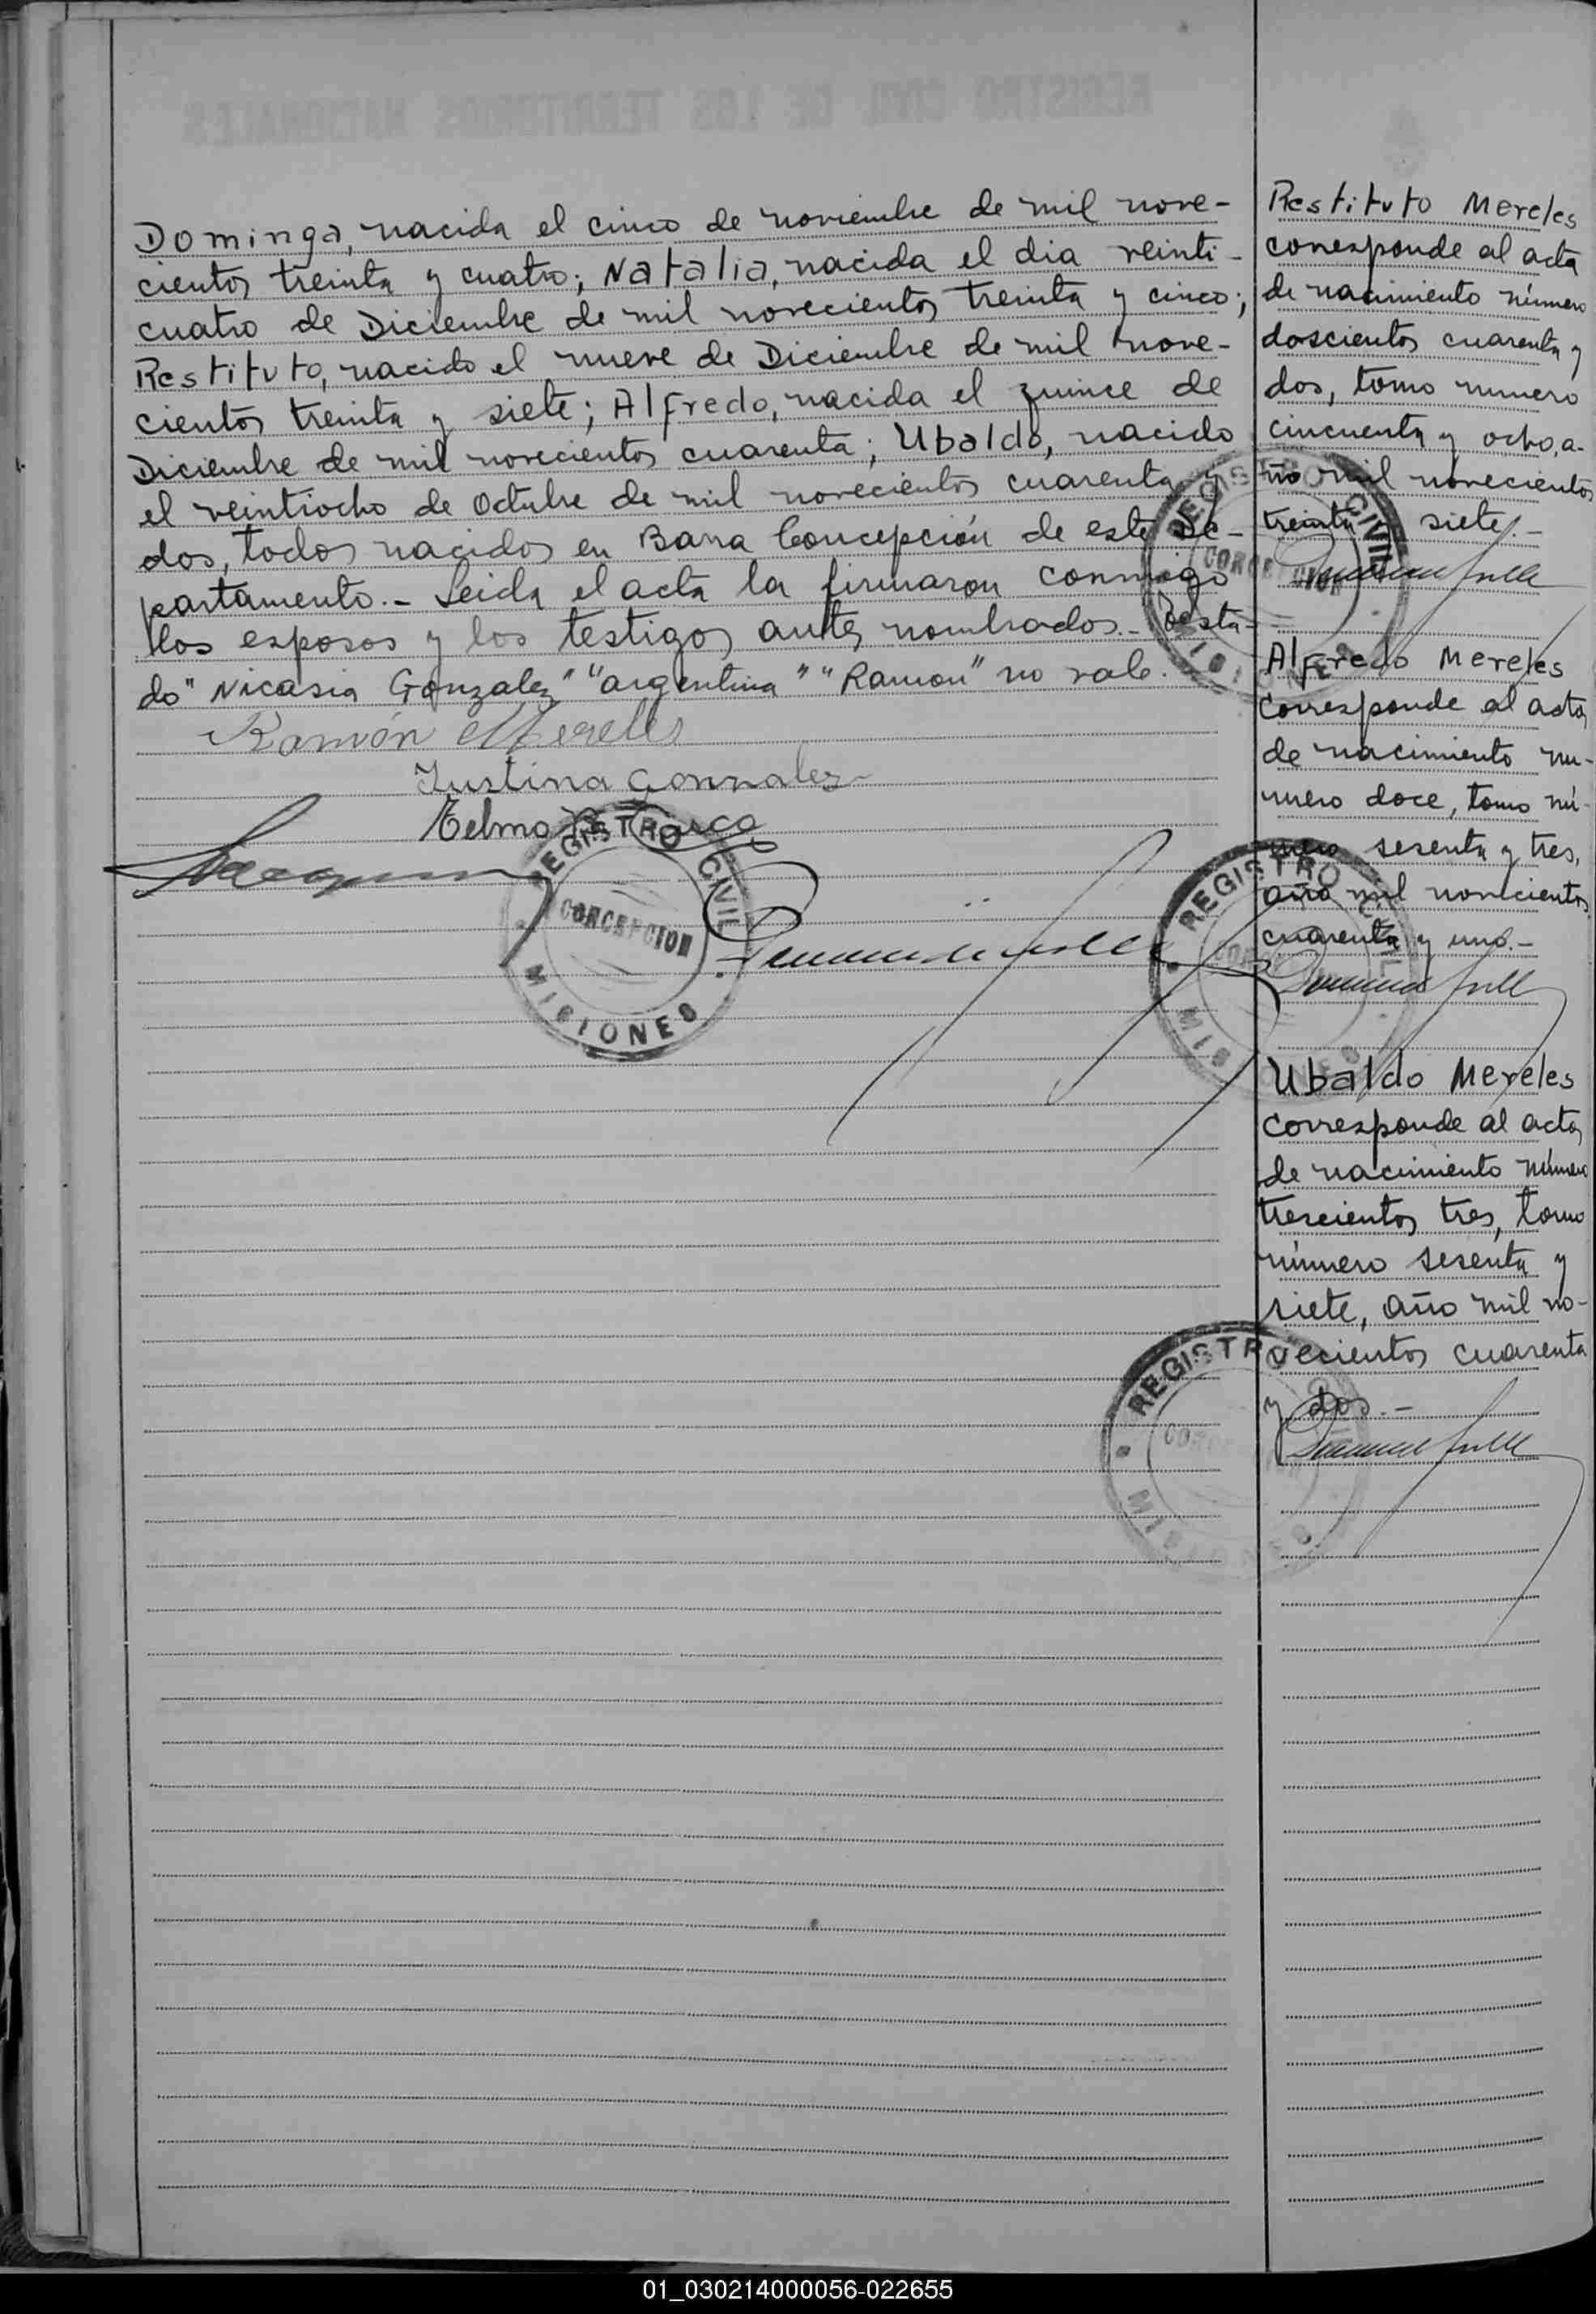 Dominga, nacida el cinco de noviembre de mil nove-
cientos treinta y cuatro; Natalia, nacida el dia veinti-
cuatro de Diciembre de mil novecientos treinta y cinco;
Restituto, nacido el nueve de Diciembre de mil nove-
cientos treinta y siete; Alfredo, nacida el quince de
Diciembre de mil novecientos cuarenta; Ubaldo, nacido
el veintiocho de Octubre de mil novecientos cuarenta y
dos, todos nacidos en Barra Concepción de este De-
partamento.- Leida el acta la firmaron conmigo
los esposos y los testigos antes nombrados.- Testa-
do "Nicasia Gonzalez" "argentina" "Ramon" no vale.
Ramón Mereles
Justina Gonzalez
Telmo
REGISTRO CIVIL
CONCEPCION
MISIONES
Restituto Mereles
corresponde al acta
de nacimiento número
doscientos cuarenta y
dos, tomo numero
cincuenta y ocho, a-
ño mil novecientos
treinta y siete.-
REGISTRO CIVIL
CONCEPCION
MISIONES
Alfredo Mereles
corresponde al acta
de nacimiento nu-
mero doce, tomo nú-
mero sesenta y tres,
año mil novecientos
cuarenta y uno.-
REGISTRO CIVIL
MISIONES
Ubaldo Mereles
corresponde al acta
de nacimiento número
trescientos tres, tomo
número sesenta y
siete, año mil no-
vecientos cuarenta
y dos.-
REGISTRO
MISIONES
REGISTRO CIVIL DE LOS TERRITORIOS NACIONALES
01_030214000056-022655